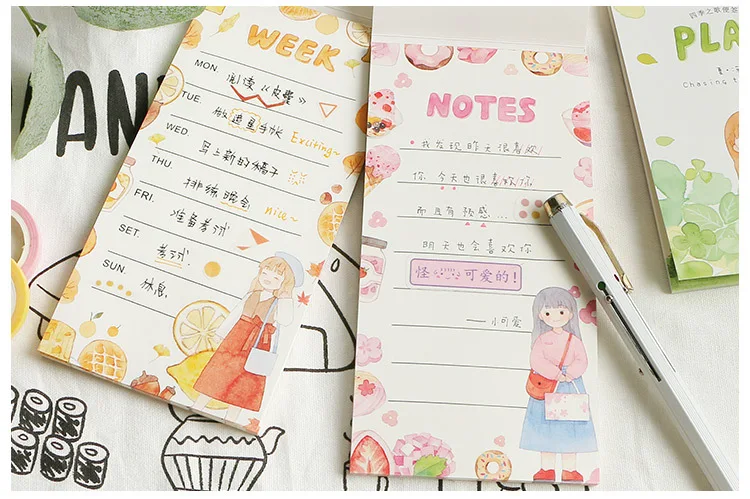 WEEK
MON.
阅读《皮囊》
TUE.
做逍遥手帐
Exciting~
WED.
THU.
排练晚会
nice~
FRI.
准备考试
SET.
考试
SUN.
休息
NOTES
我发现昨天很喜欢
你 今天也很喜欢你
而且有预感...
明天也会喜欢你
怪 可爱的!
——小可爱
AN
四季之歌便签
PLA
夏·
Chasing t